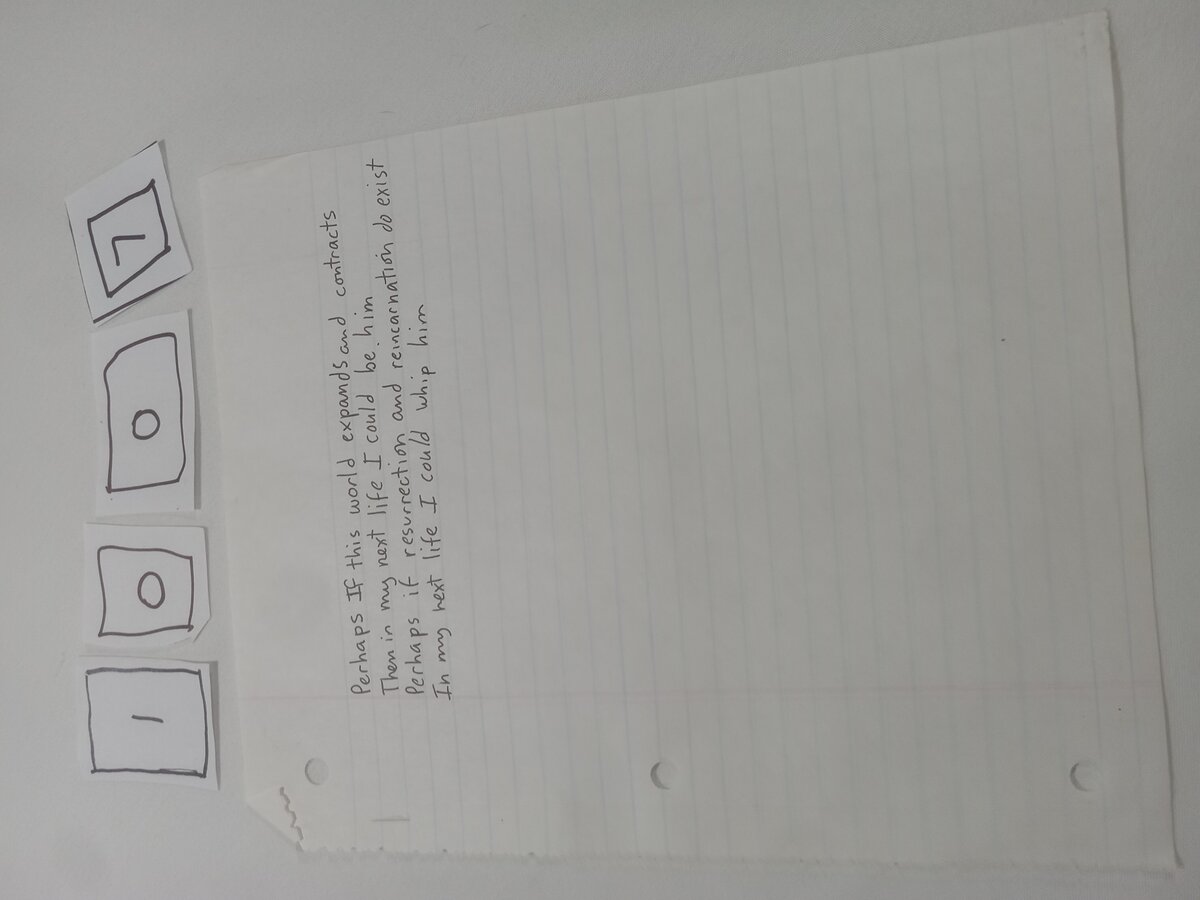 1 0 0 7
Perhaps If this world expands and contracts
Then in my next life I could be him
Perhaps if resurrection and reincarnation do exist
In my next life I could whip him